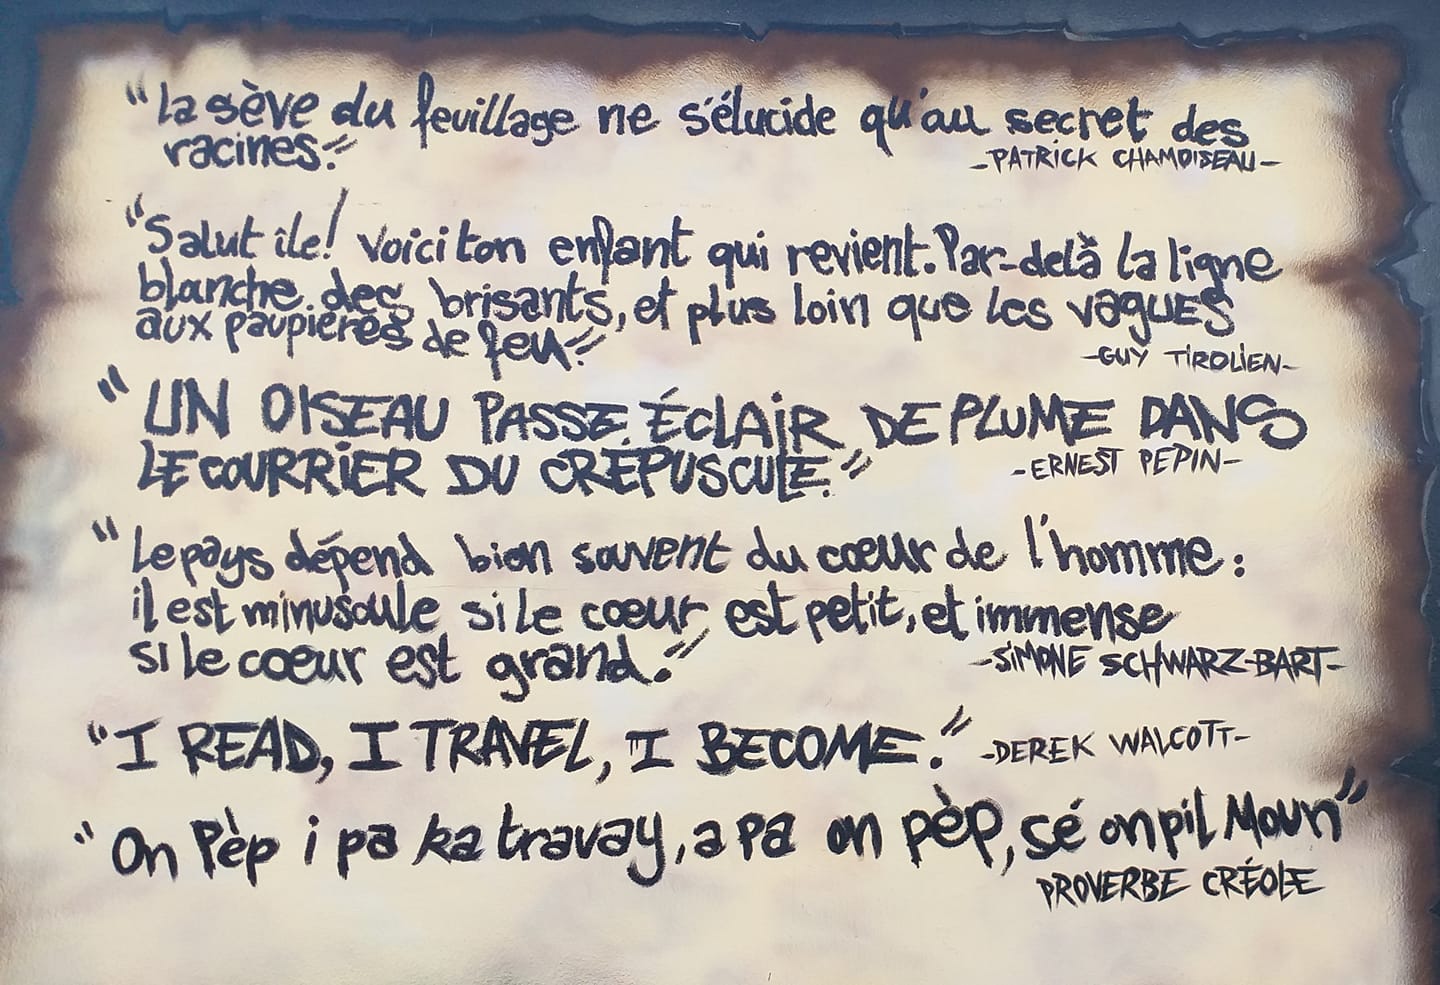 "La sève du feuillage ne s'élucide qu'au secret des
racines."
-PATRICK CHAMOISEAU-
"Salut île! Voici ton enfant qui revient. Par-delà la ligne
blanche des brisants, et plus loin que les vagues
aux paupières de feu."
-GUY TIROLIEN-
"UN OISEAU PASSE. ÉCLAIR DE PLUME DANS
LE COURRIER DU CREPUSCULE."
-ERNEST PEPIN-
"Le pays dépend bien souvent du cœur de l'homme:
il est minuscule si le cœur est petit, et immense
si le cœur est grand."
-SIMONE SCHWARZ-BART-
"I READ, I TRAVEL, I BECOME." -DEREK WALCOTT-
"On Pèp i pa ka travay, a pa on pèp, sé on pil Moun"
PROVERBE CRÉOLE